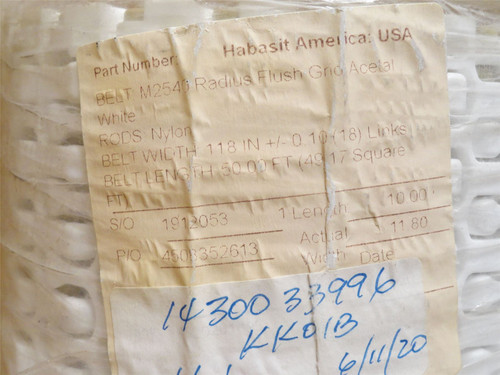 Habasit America: USA
Part Number:
BELT M2540 Radius Flush Grid Acetal
White
RODS: Nylon
BELT WIDTH 11.8 IN +/- 0.10 (18) Links
BELT LENGTH: 50.00 FT (49.17 Square
Ft)
S/O 1912053 1 Length 10.00
P/O 4503352613 Actual 11.80
Width Date
14300 33996
KK01B
6/11/20